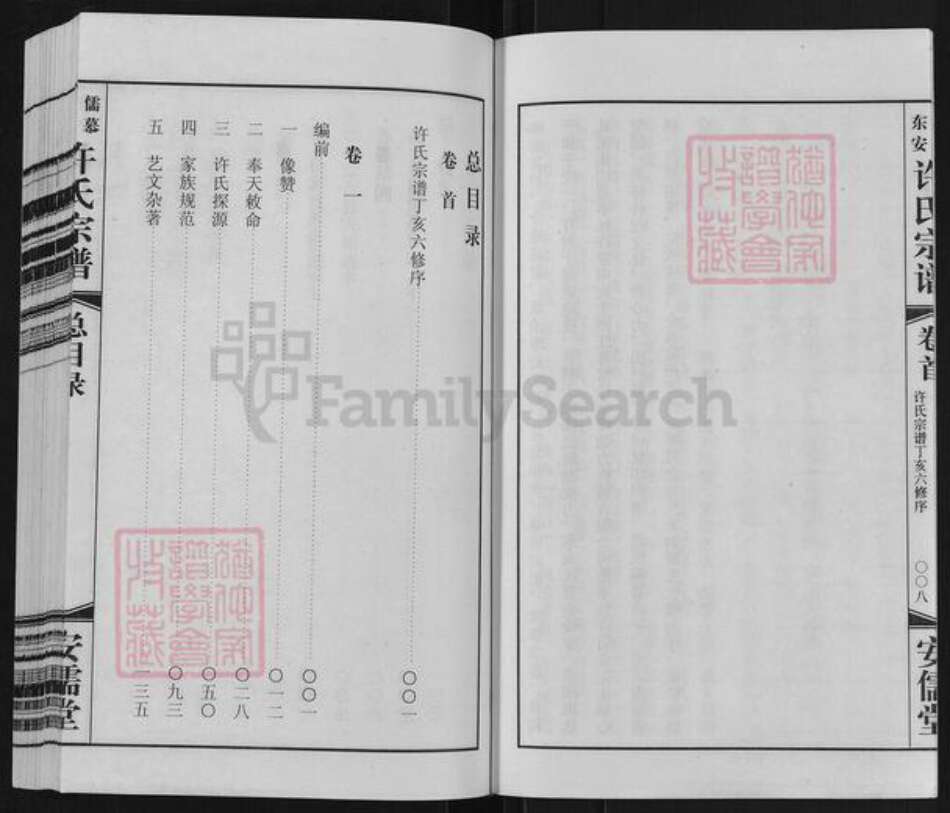 东安
许氏宗谱
卷首
许氏宗谱丁亥六修序
〇〇八
安儒堂
总目录
卷首
许氏宗谱丁亥六修序 〇〇一
卷一
编前 〇〇一
一 像赞 〇一二
二 奉天敕命 〇二八
三 许氏探源 〇五〇
四 家族规范 〇九三
五 艺文杂著 一三五
儒慕
许氏宗谱
总目录
安儒堂
猶他家
譜學會
收藏
猶他家
譜學會
收藏
FamilySearch